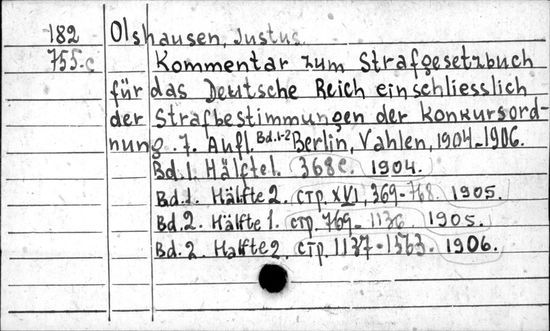 182 Olshausen, Justus
755-c Kommentar zum Strafgesetzbuch
für das Deutsche Reich einschliesslich
der Strafbestimmungen der Konkursord-
nung. 7. Aufl. Bd.1-2 Berlin, Vahlen, 1904-1906.
Bd.1. Hälfte1. 368 c. 1904.
Bd.1. Hälfte 2. стр. XVI, 369-768. 1905.
Bd.2. Hälfte 1. стр. 769-1136 1905.
Bd.2. Halfte 2. стр. 1137-1563. 1906.